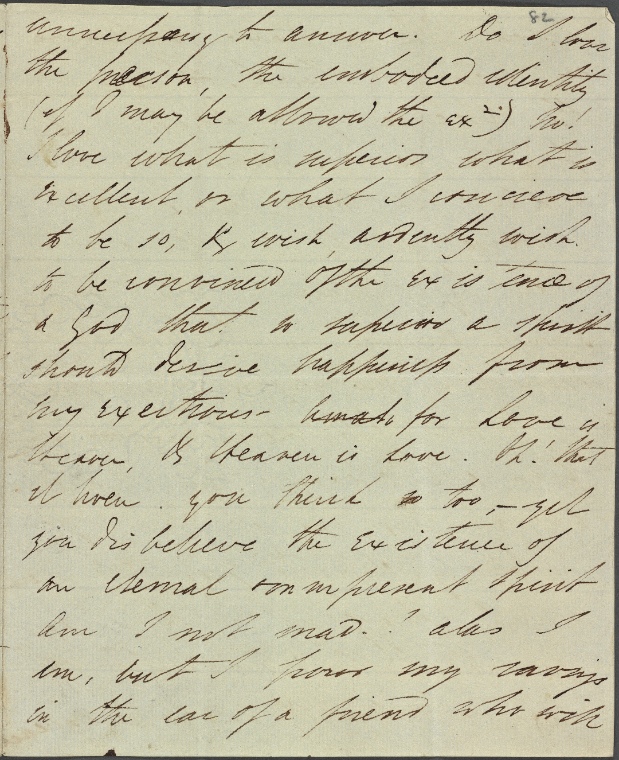 82
unnecessary to answer. Do I love
the person, the embodied identity
(if I may be allowed the exn.) no!
I love what is superior what is
excellent, or what I concieve
to be so, & wish, ardently wish
to be convinced of the existence of
a God that so superior a spirit
should derive happiness from
my exertions – for Love is
Heaven, & Heaven is Love. Oh! that
it were. you think so too, – yet
you disbelieve the existence of
an eternal omnipresent Spirit
Am I not mad? alas I
am, but I pour my ravings
in the ear of a friend who will